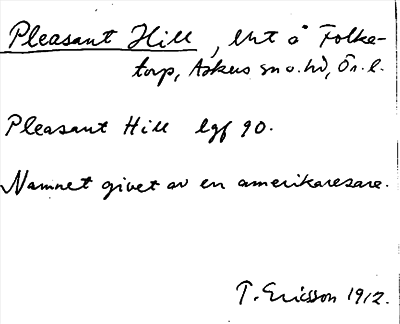 Pleasant Hill, lht å Folke-
torp, Askers sn o. hd, Ör. l.
Pleasant Hill lgf 90.
Namnet givet av en amerikaresare.
T. Ericsson 1912.